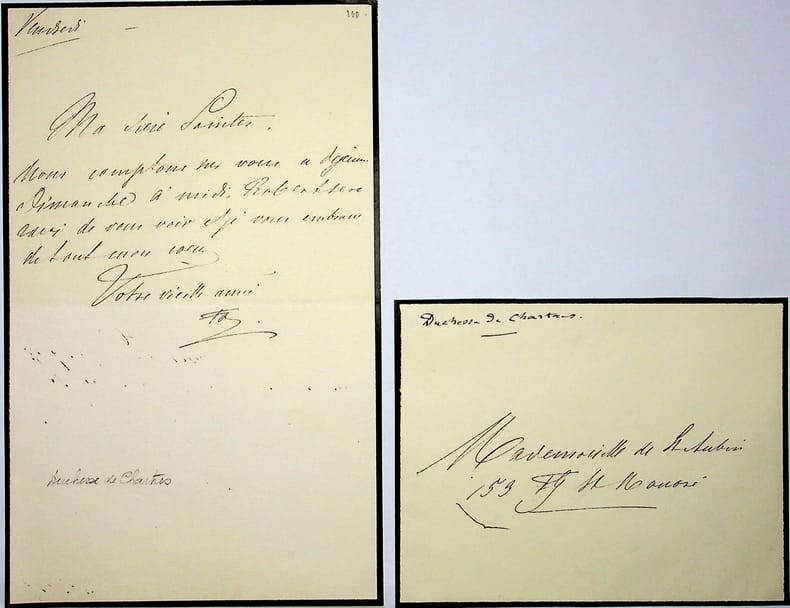 Vendredi
100
Ma chère Saintes.
Nous comptons sur vous a déjeuner
Dimanche à midi, Robert sera
ravi de vous voir et je vous embrasse
de tout mon cœur
Votre vieille amie
Duchesse de Chartres
Duchesse de Chartres.
Mademoiselle de St Aubin
153 Fg St Honoré